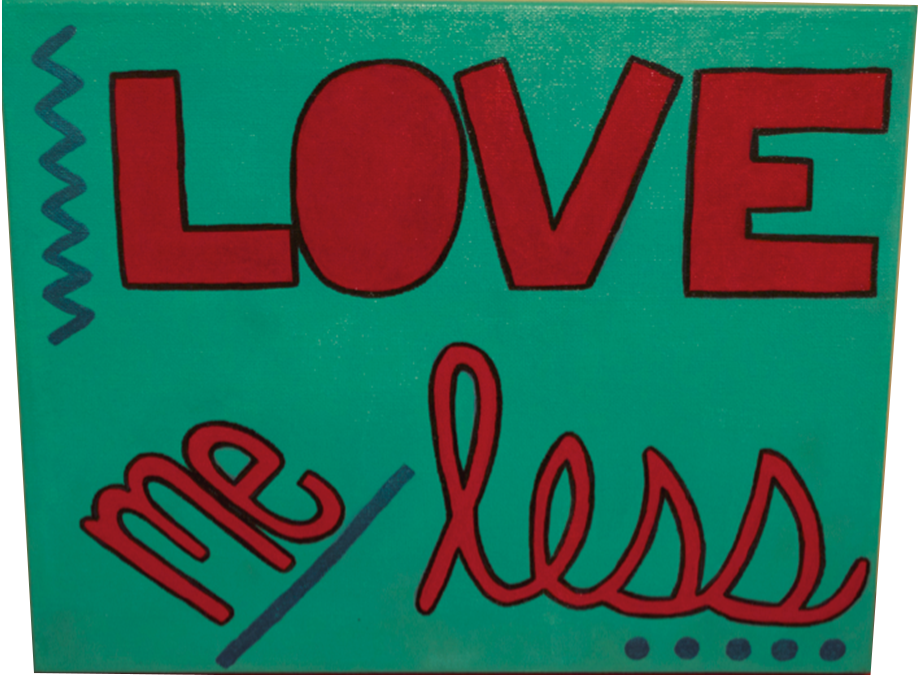 LOVE
me / less